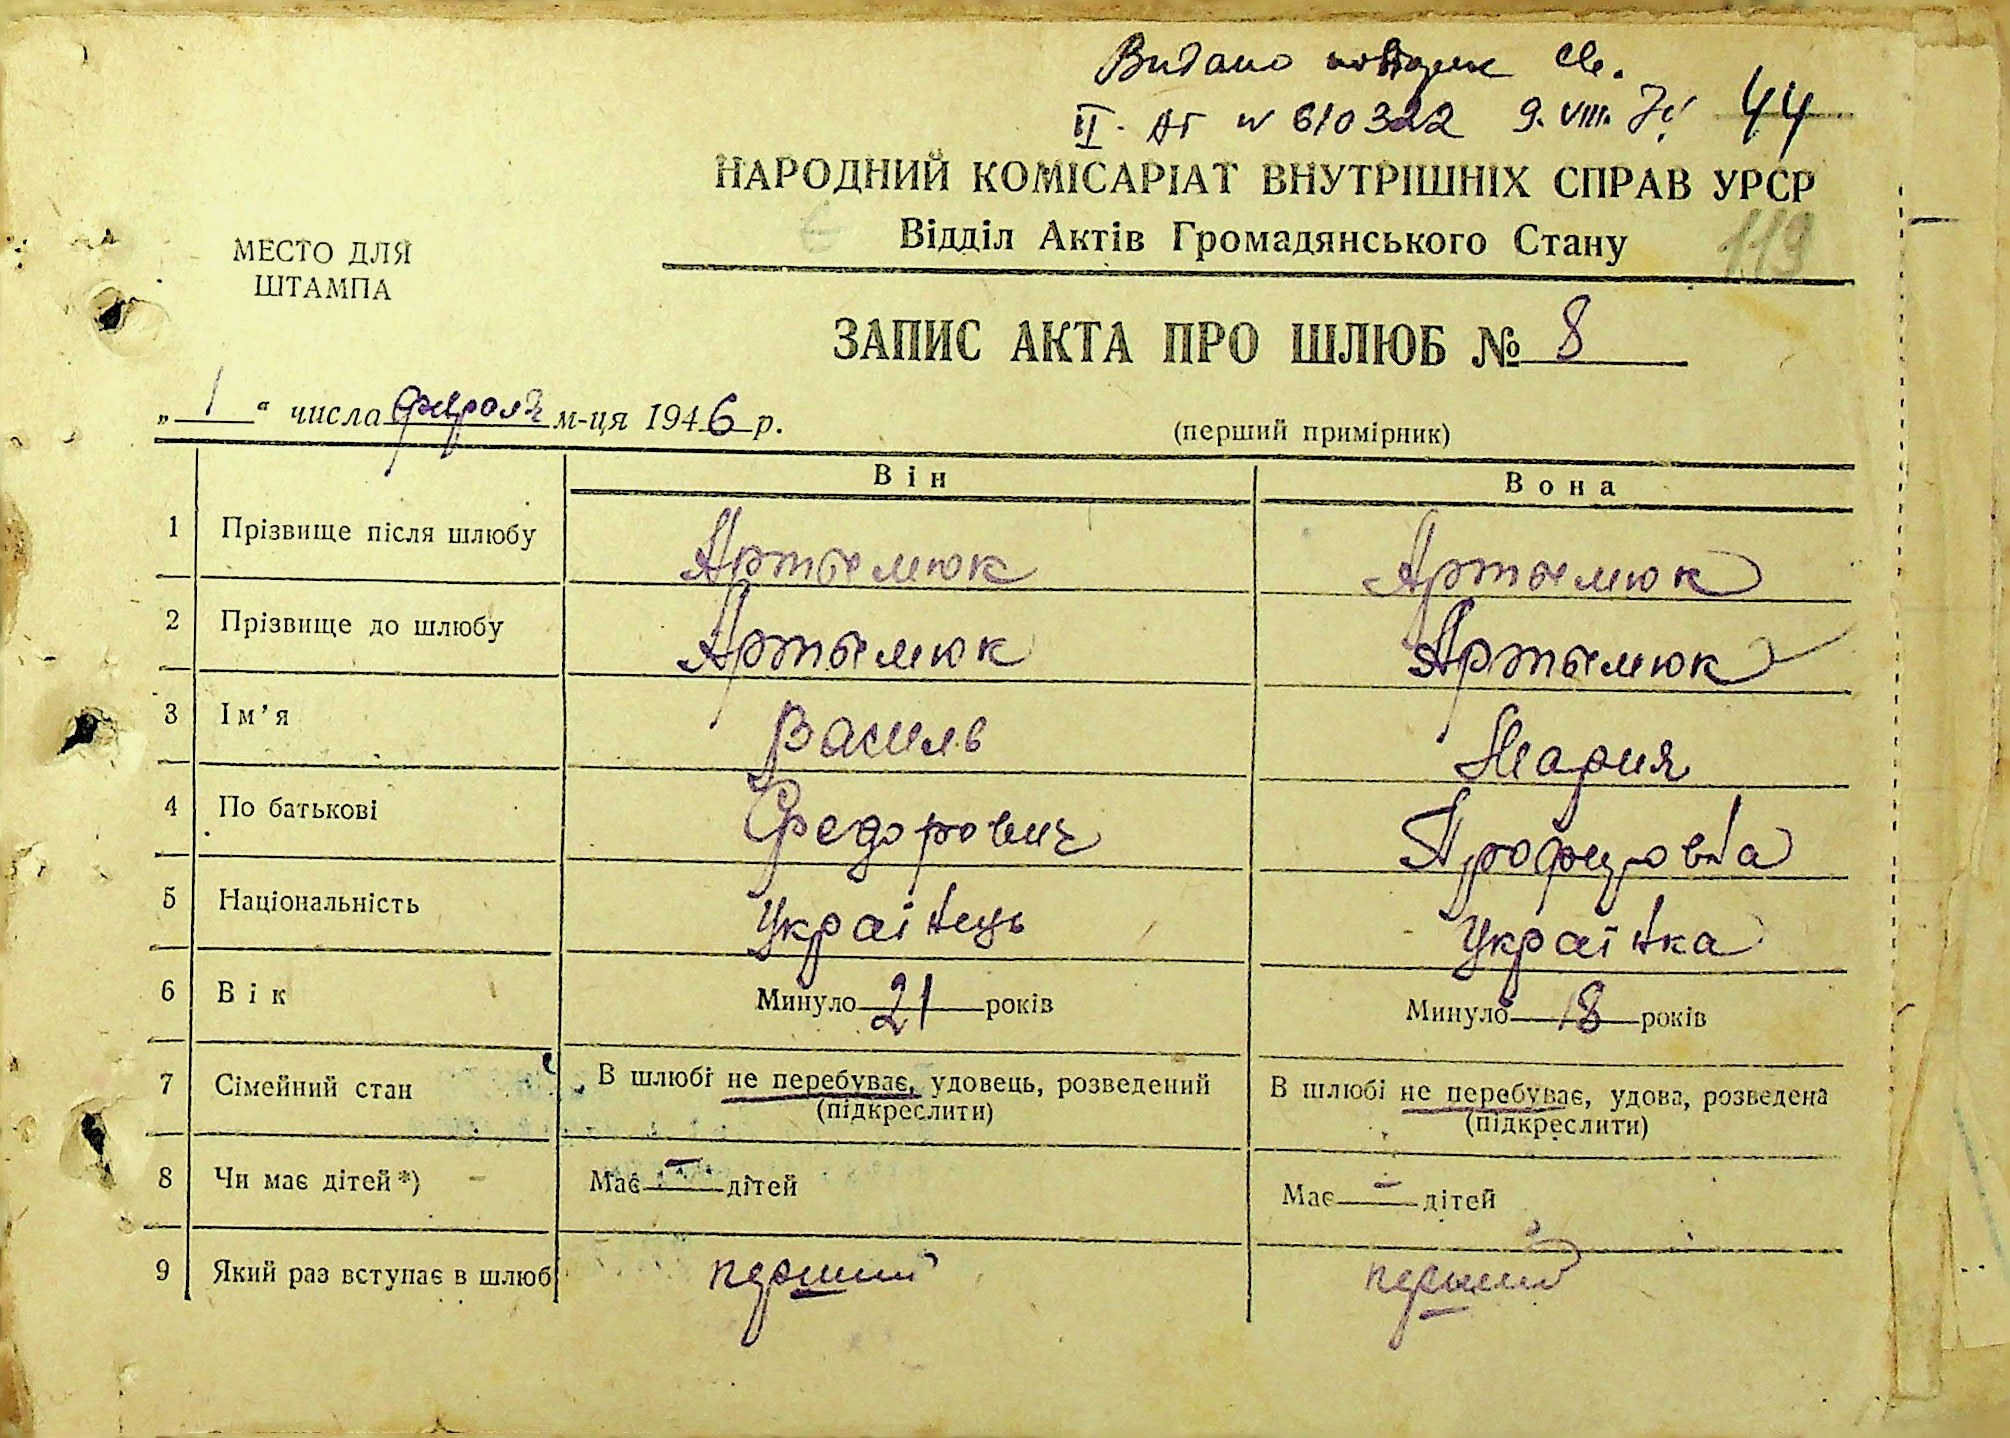 Видано повторне св.
II-АГ № 610322 9.VIII. 44
НАРОДНИЙ КОМІСАРІАТ ВНУТРІШНІХ СПРАВ УРСР
Відділ Актів Громадянського Стану 119
МЕСТО ДЛЯ
ШТАМПА
ЗАПИС АКТА ПРО ШЛЮБ № 8
„ 1 “ числа февраля м-ця 1946 р.
(перший примірник)
Він Вона
1 Прізвище після шлюбу Артымюк Артымюк
2 Прізвище до шлюбу Артымюк Артымюк
3 Ім’я Василь Мария
4 По батькові Федорович
5 Національність Українець Українка
6 Вік Минуло 21 років Минуло 18 років
7 Сімейний стан В шлюбі не перебуває, удовець, розведений В шлюбі не перебуває, удова, розведена
(підкреслити) (підкреслити)
8 Чи має дітей*) Має — дітей Має — дітей
9 Який раз вступає в шлюб перший перший